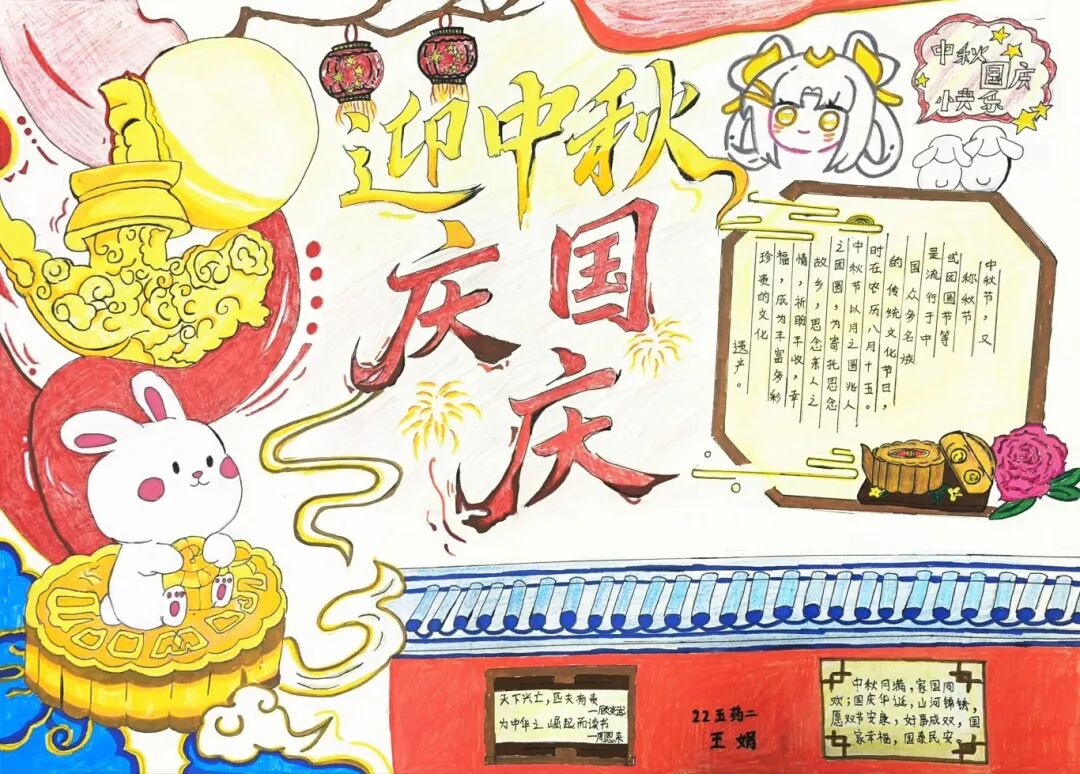 迎中秋
庆国
庆
中秋
国庆
乐
中秋节，又
称秋节
或团圆节等
是流行于中
国众多名族
的传统文化节日，
时在农历八月十五。
中秋节以月之圆兆人
之团圆，为寄托思念
故乡，思念亲人之
情，祈盼丰收，幸
福，成为丰富多彩
珍贵的文化
遗产。
天下兴亡，匹夫有责
—顾炎武
为中华之崛起而读书
—周恩来
22五药二
王娟
中秋月满，家国同
欢；国庆华诞，山河锦绣，
愿双节安康，好事成双，国
家幸福，国泰民安。